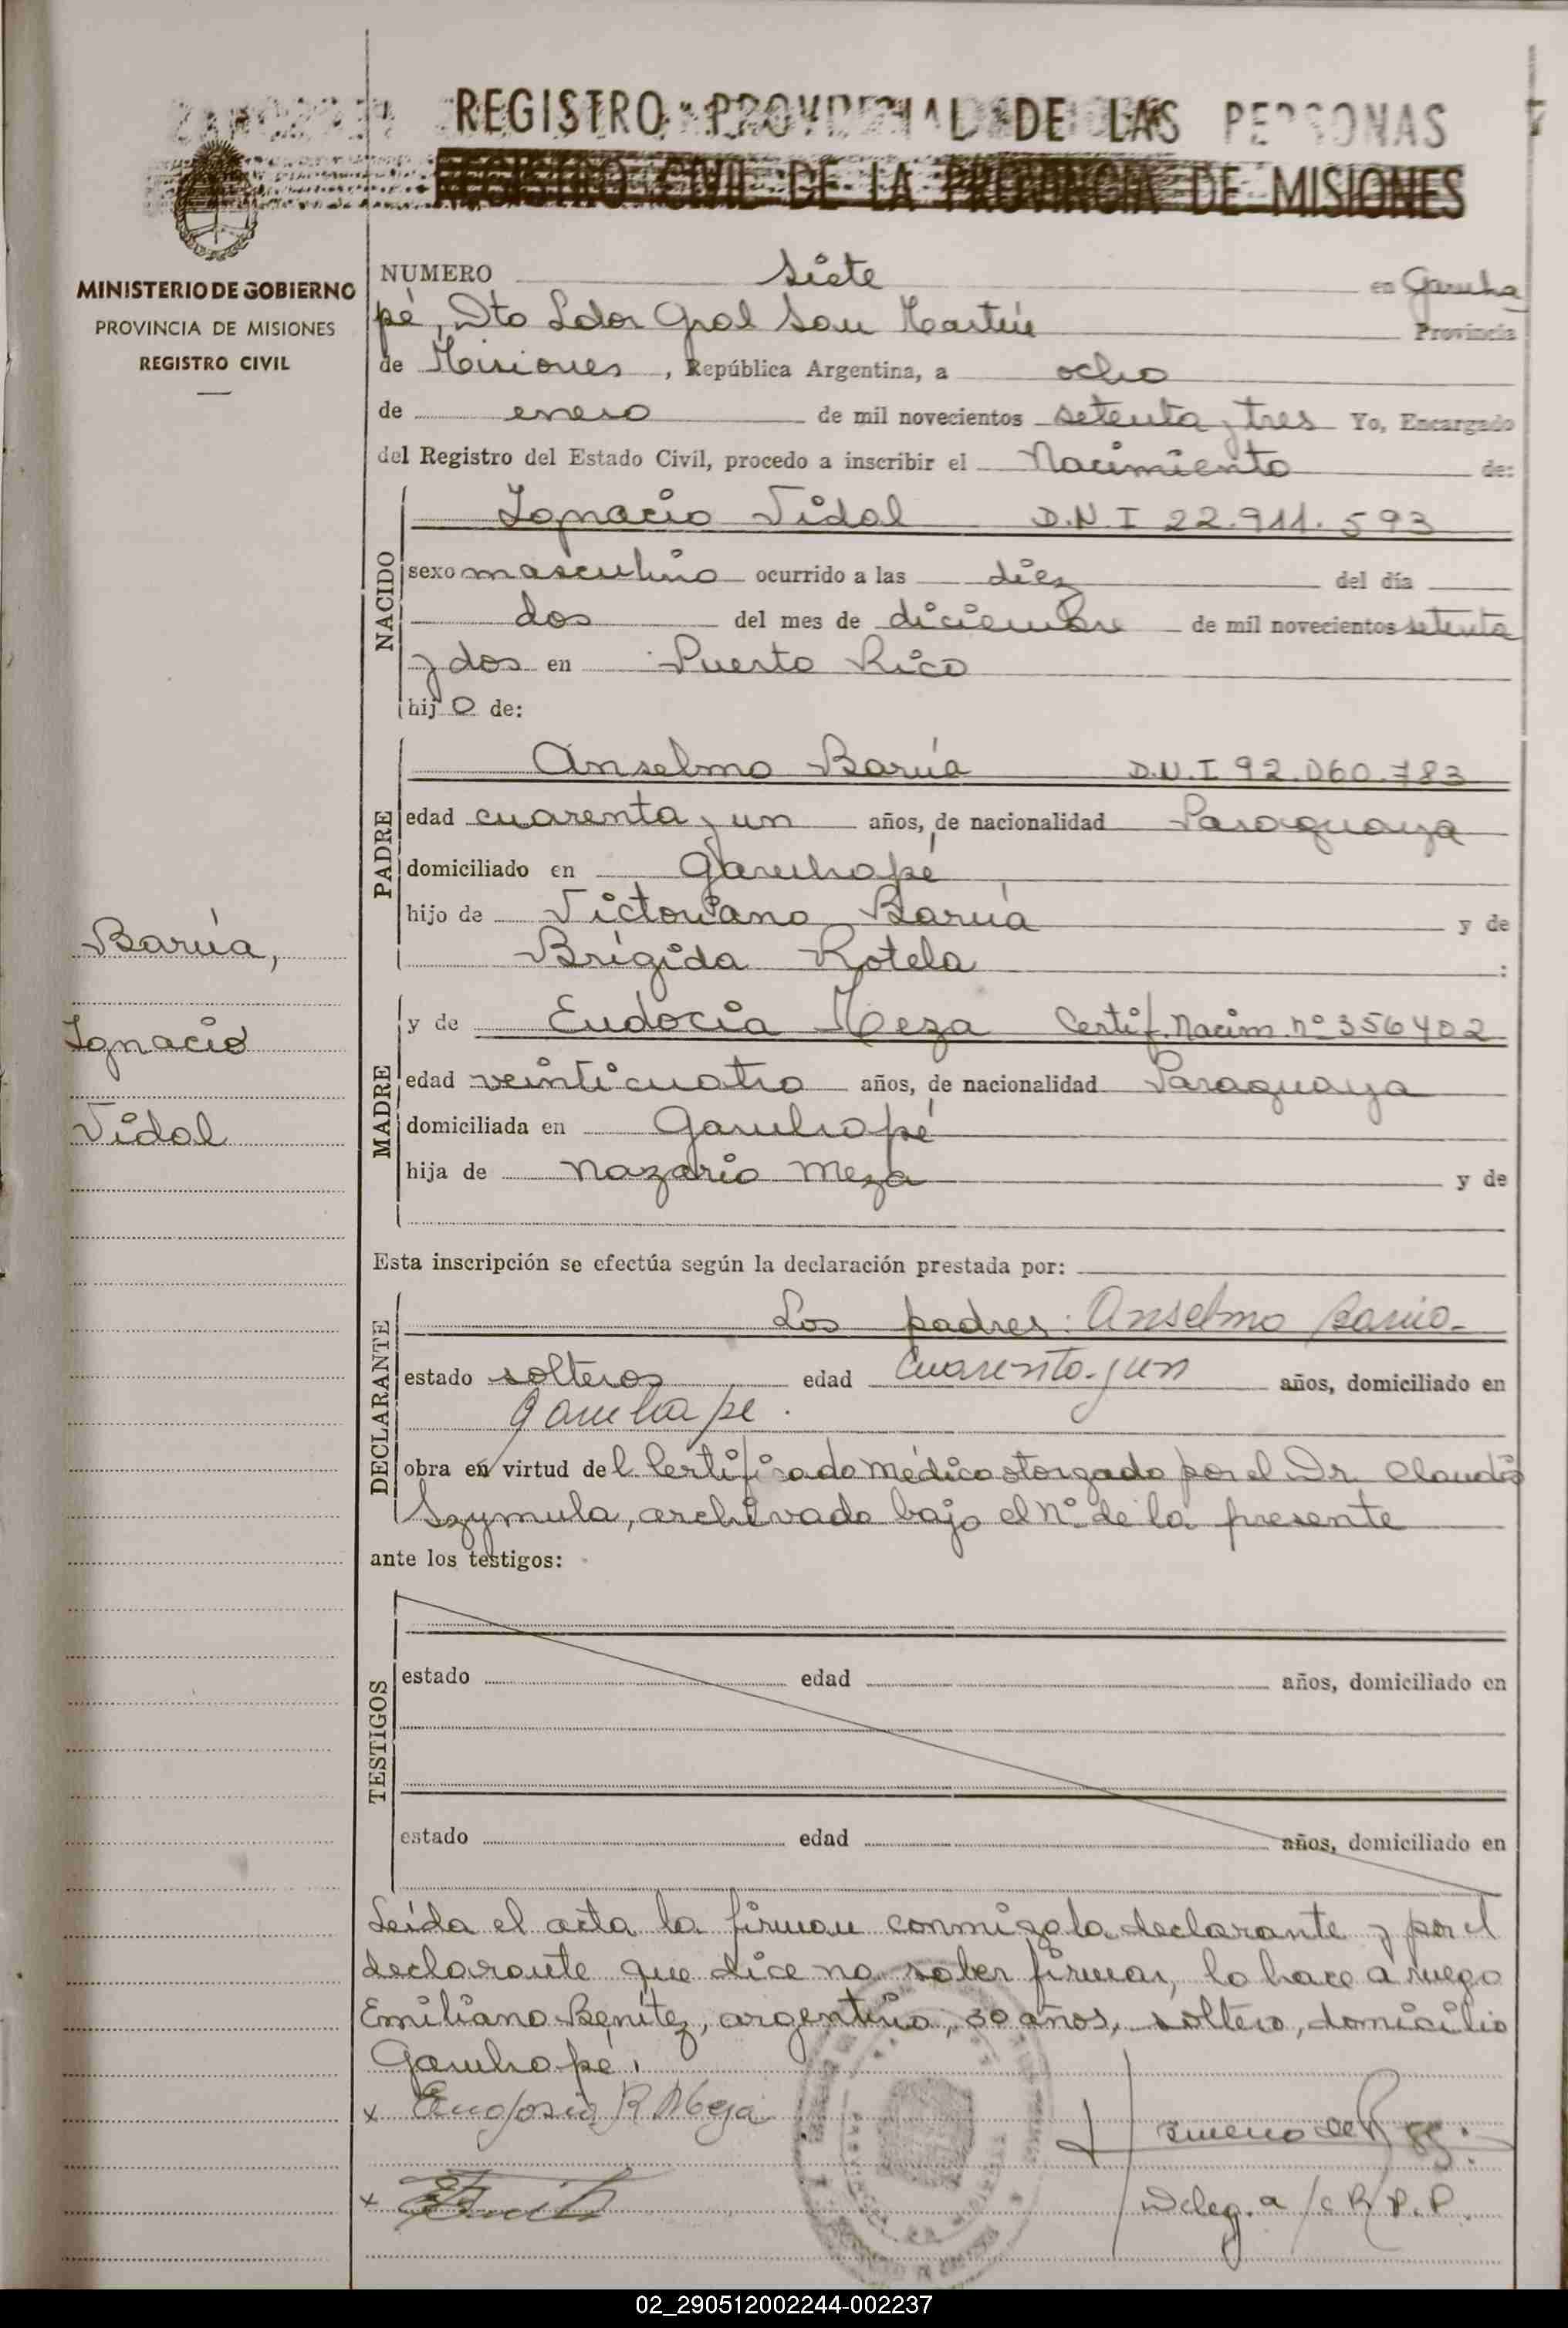 REGISTRO PROVINCIAL DE LAS PERSONAS
REGISTRO CIVIL DE LA PROVINCIA DE MISIONES
MINISTERIO DE GOBIERNO
PROVINCIA DE MISIONES
REGISTRO CIVIL
NUMERO siete en Garuha
pé, Dto Ldor Gral San Martín Provincia
de Misiones, República Argentina, a ocho
de enero de mil novecientos setenta y tres Yo, Encargado
del Registro del Estado Civil, procedo a inscribir el Nacimiento de:
NACIDO
Ignacio Vidal D.N.I 22.911.593
sexo masculino ocurrido a las diez del día
dos del mes de diciembre de mil novecientos setenta
y dos en Puerto Rico
hijo de:
PADRE
Anselmo Barúa D.N.I 92.060.783
edad cuarenta y un años, de nacionalidad Paraguaya
domiciliado en Garuhapé
hijo de Victoriano Barúa y de
Brígida Rotela :
Barúa,
Ignacio
Vidal
MADRE
y de Eudocia Meza Certif. Nacim. nº 356402
edad veinticuatro años, de nacionalidad Paraguaya
domiciliada en Garuhapé
hija de Nazario Meza y de
Esta inscripción se efectúa según la declaración prestada por:
DECLARANTE
Los padres: Anselmo Barua-
estado solteros edad cuarenta y un años, domiciliado en
Garuhape.
obra en virtud del Certificado Médico otorgado por el Dr. Claudio
Szymula, archivado bajo el Nº de la presente
ante los testigos:
TESTIGOS
estado edad años, domiciliado en
estado edad años, domiciliado en
Leída el acta la firman conmigo la declarante y por el
declarante que dice no saber firmar, lo hace a ruego
Emiliano Benítez, argentino, 30 años, soltero, domicilio
Garuhapé.
x R Meza
x
Deleg.a R.P.P.
02_290512002244-002237